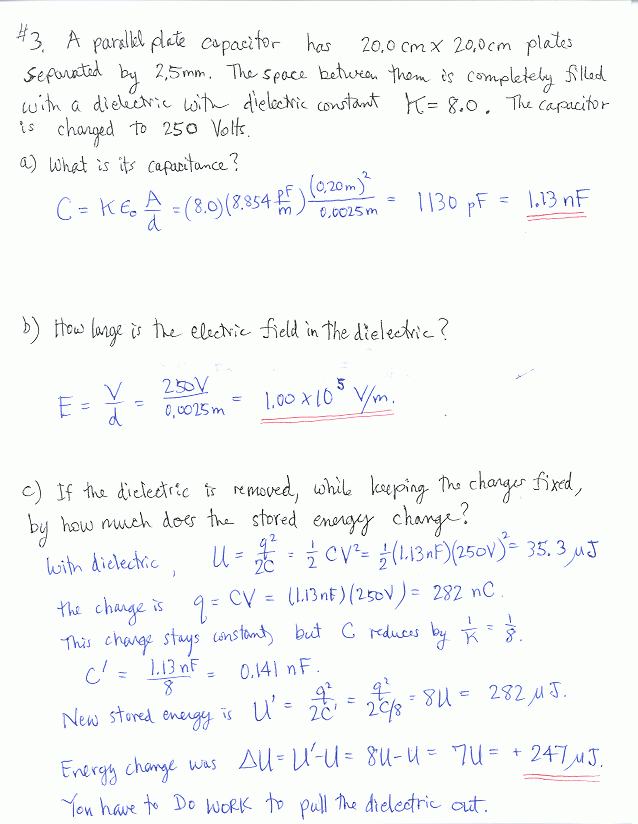 #3. A parallel plate capacitor has 20.0 cm x 20.0 cm plates
separated by 2.5mm. The space between them is completely filled
with a dielectric with dielectric constant K = 8.0. The capacitor
is charged to 250 Volts.
a) What is its capacitance?
C = K ε₀ A/d = (8.0)(8.854 pF/m) (0.20m)²/0.0025m = 1130 pF = 1.13 nF
b) How large is the electric field in the dielectric?
E = V/d = 250V/0.0025m = 1.00 x 10⁵ V/m.
c) If the dielectric is removed, while keeping the charges fixed,
by how much does the stored energy change?
With dielectric, U = q²/2C = 1/2 CV² = 1/2 (1.13nF)(250V)² = 35.3 μJ
the charge is q = CV = (1.13nF)(250V) = 282 nC.
This charge stays constant, but C reduces by 1/K = 1/8.
C' = 1.13 nF/8 = 0.141 nF.
New stored energy is U' = q²/2C' = q²/2C/8 = 8U = 282 μJ.
Energy change was ΔU = U'-U = 8U-U = 7U = + 247 μJ.
You have to DO WORK to pull the dielectric out.